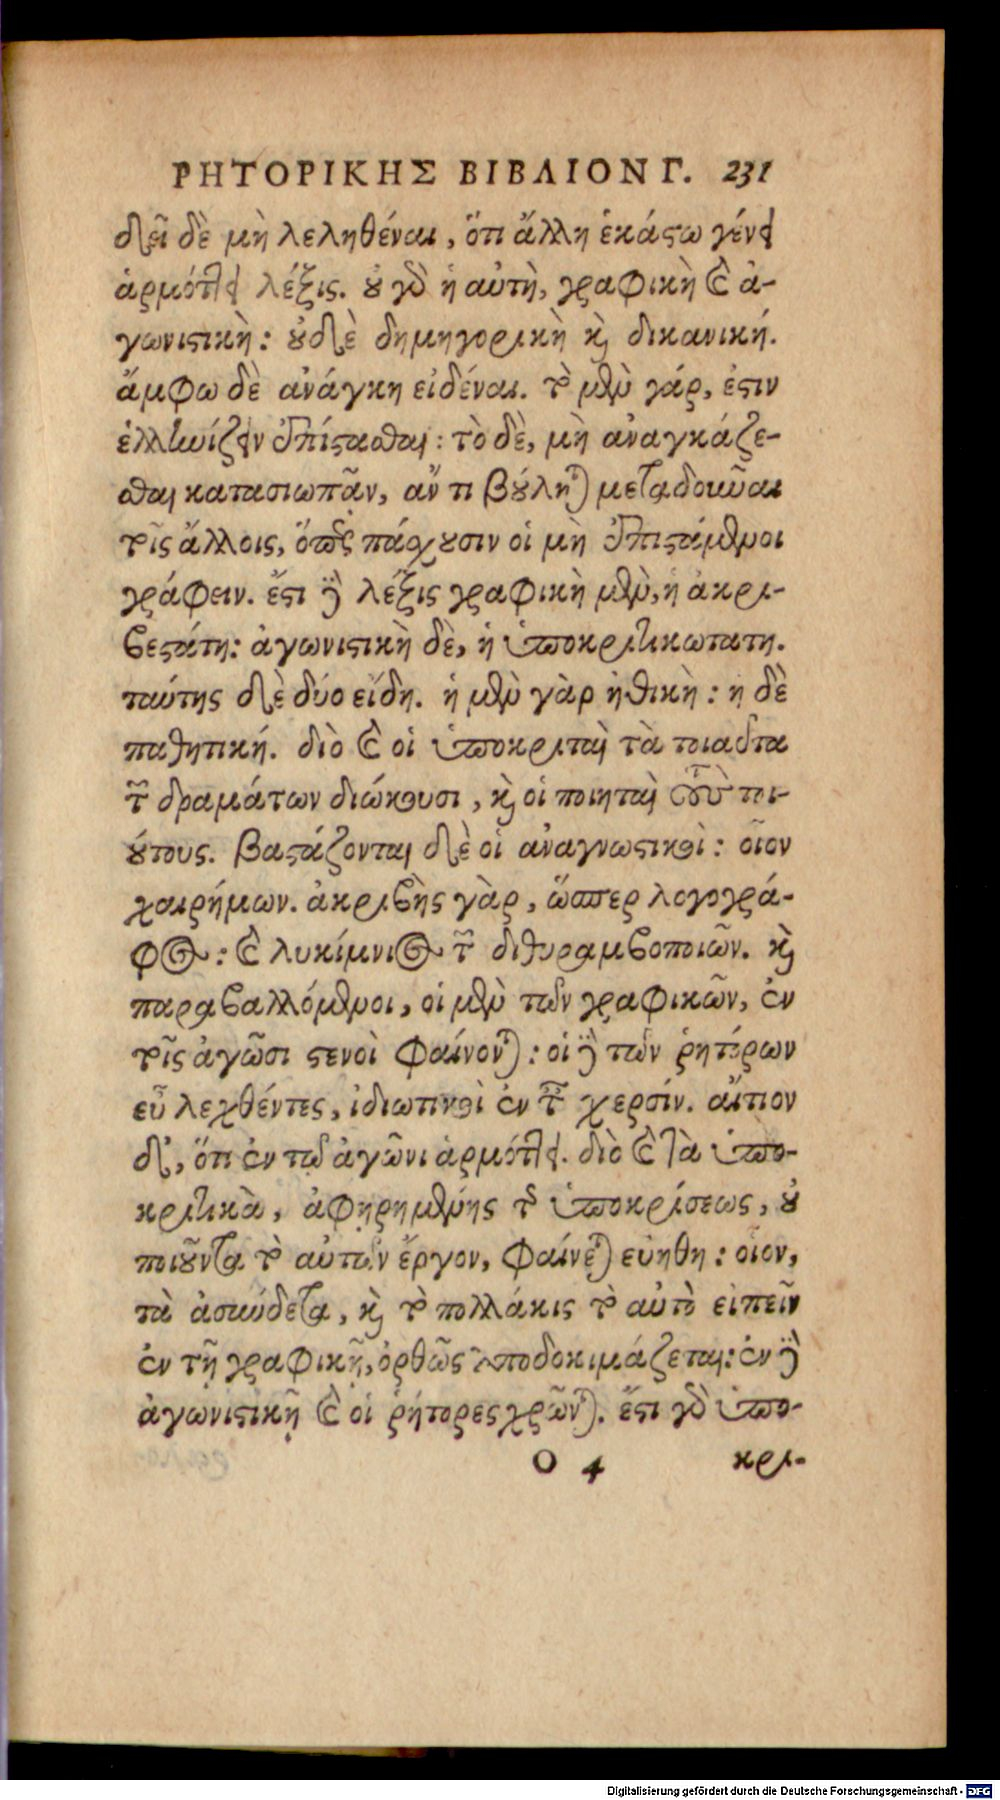 ΡΗΤΟΡΙΚΗΣ ΒΙΒΛΙΟΝ Γ. 231
δεῖ δὲ μὴ λεληθέναι, ὅτι ἄλλη ἑκάστῳ γένει
ἁρμόττει λέξις. οὐ γὰρ ἡ αὐτὴ, γραφικὴ καὶ ἀ-
γωνιστικὴ: οὐδὲ δημηγορικὴ καὶ δικανική.
ἄμφω δὲ ἀνάγκη εἰδέναι. τὸ μὲν γάρ, ἐστιν
ἑλληνίζειν ἐπίστασθαι: τὸ δὲ, μὴ ἀναγκάζε-
σθαι κατασιωπᾶν, ἄν τι βούληται μεταδοῦναι
τοῖς ἄλλοις, ὅπερ πάσχουσιν οἱ μὴ ἐπιστάμενοι
γράφειν. ἔστι δὲ λέξις γραφικὴ μὲν, ἡ ἀκρι-
βεστάτη: ἀγωνιστικὴ δὲ, ἡ ὑποκριτικωτατη.
ταύτης δὲ δύο εἴδη. ἡ μὲν γὰρ ἠθικὴ: η δὲ
παθητική. διὸ καὶ οἱ ὑποκριταὶ τὰ τοιαῦτα
τῶν δραμάτων διώκουσι, καὶ οἱ ποιηταὶ τοὺς τοι-
ούτους. βαστάζονται δὲ οἱ ἀναγνωστικοὶ: οἷον
χαιρήμων. ἀκριβὴς γὰρ, ὥσπερ λογογρά-
φος: καὶ λυκίμνιος τῶν διθυραμβοποιῶν. καὶ
παραβαλλόμενοι, οἱ μὲν τῶν γραφικῶν, ἐν
τοῖς ἀγῶσι στενοὶ φαίνονται: οἱ δὲ τῶν ῥητόρων
εὖ λεχθέντες, ἰδιωτικοὶ ἐν ταῖς χερσίν. αἴτιον
δ', ὅτι ἐν τῷ ἀγῶνι ἁρμόττει. διὸ καὶ τὰ ὑπο-
κριτικὰ, ἀφῃρημένης τῆς ὑποκρίσεως, οὐ
ποιοῦντα τὸ αὐτῶν ἔργον, φαίνεται εὐηθη: οἷον,
τὰ ἀσύνδετα, καὶ τὸ πολλάκις τὸ αὐτὸ εἰπεῖν
ἐν τῇ γραφικῇ, ὀρθῶς ἀποδοκιμάζεται: ἐν δὲ
ἀγωνιστικῇ καὶ οἱ ῥήτορες χρῶνται. ἔστι γὰρ ὑπο-
O 4 κρι-
Digitalisierung gefördert durch die Deutsche Forschungsgemeinschaft - DFG